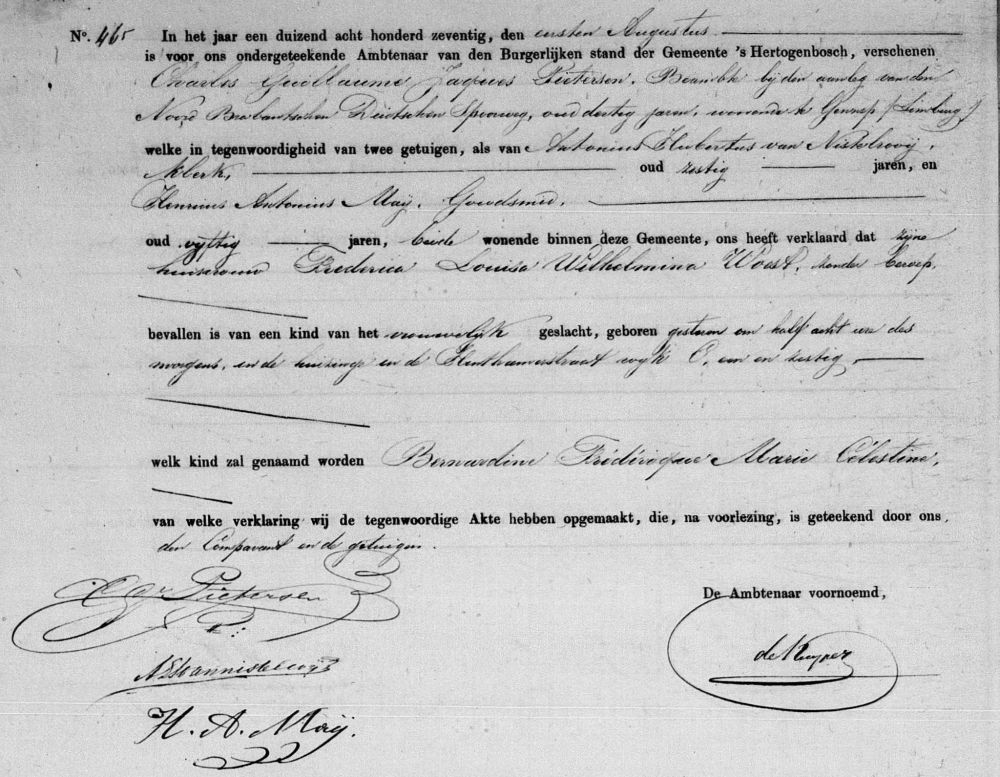 No. 465 In het jaar een duizend acht honderd zeventig, den eersten Augustus
is voor ons ondergeteekende Ambtenaar van den Burgerlijken stand der Gemeente 's Hertogenbosch, verschenen
Charles Guillaume Jaques Pietersen, Beambte bij den aanleg van den
Noord Brabantschen Duitschen Spoorweg, oud dertig jaren, wonende te Gennep (Limburg)
welke in tegenwoordigheid van twee getuigen, als van Antonius Hubertus van Nistelrooij,
klerk, oud zestig jaren, en
Henricus Antonius Maij, Goudsmid,
oud vijftig jaren, beide wonende binnen deze Gemeente, ons heeft verklaard dat zijne
huisvrouw Frederica Louisa Wilhelmina Woest, zonder beroep,
bevallen is van een kind van het vrouwelijk geslacht, geboren gisteren om half acht ure des
morgens, in de huizinge in de Hinthamerstraat wijk C, een en zestig,
welk kind zal genaamd worden Bernardine Frédérique Marie Célestine,
van welke verklaring wij de tegenwoordige Akte hebben opgemaakt, die, na voorlezing, is geteekend door ons,
den Comparant en de getuigen.
De Ambtenaar voornoemd,
Pietersen
de Kuyper
H. A. Maij.